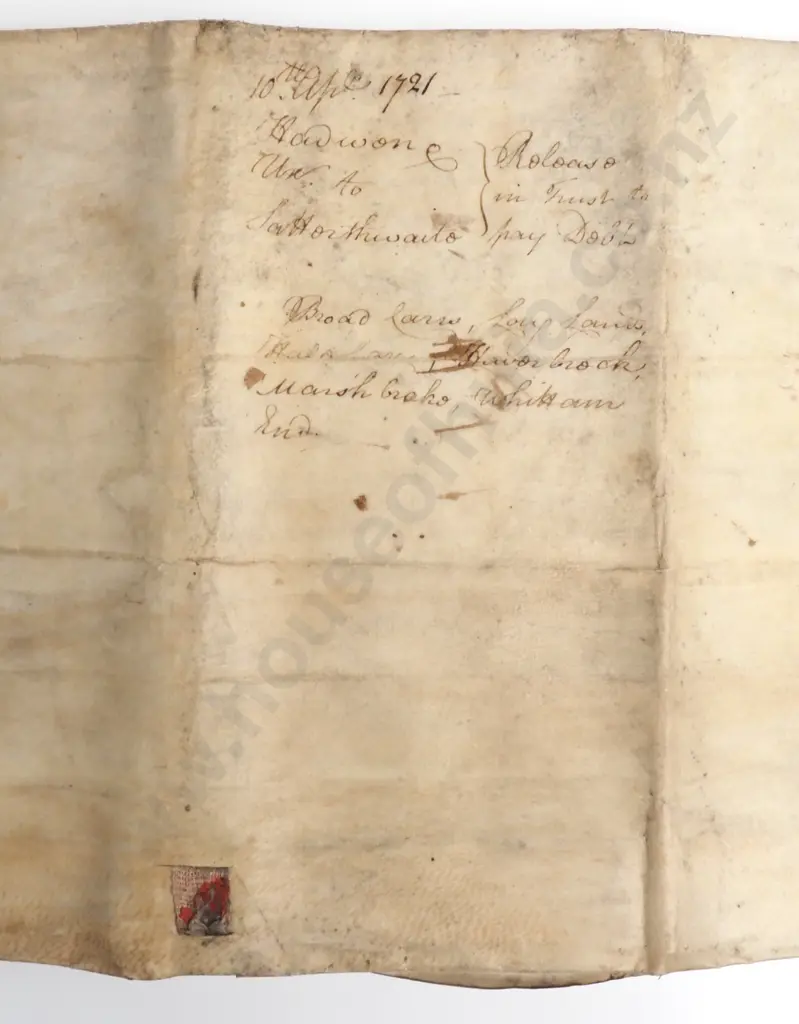 10th Apl. 1721
Hadwen &
Ux. to
Satterthwaite
Release
in Trust to
pay Debts
Broad Carrs, Long Carrs,
Half Carrs, Haverbrack,
Marsh broke Whittam
End.
www.houseofnuva.co.nz